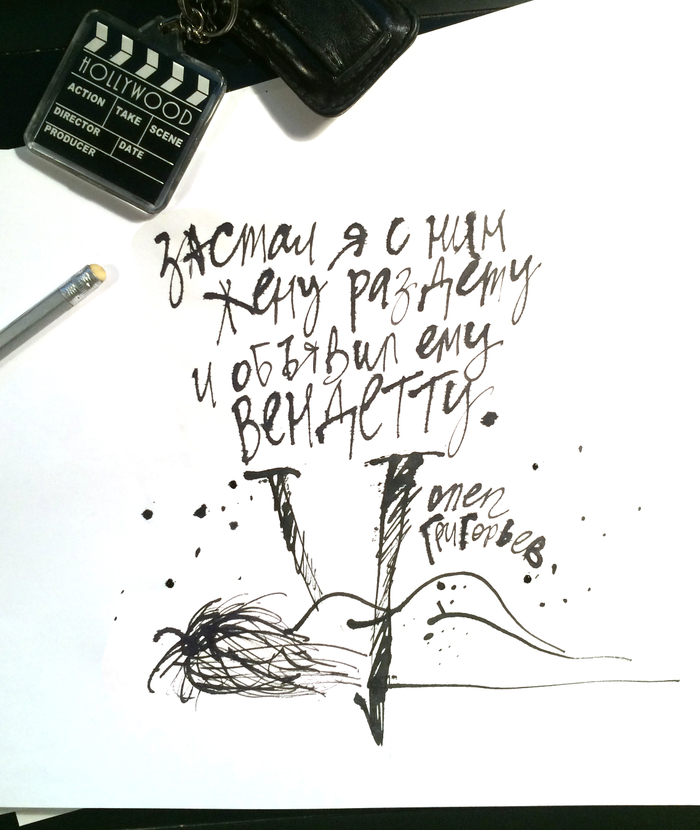 HOLLYWOOD
ACTION TAKE SCENE
DIRECTOR
PRODUCER DATE
застал я с ним
жену раздету
и объявил ему
вендетту.
олег
григорьев.